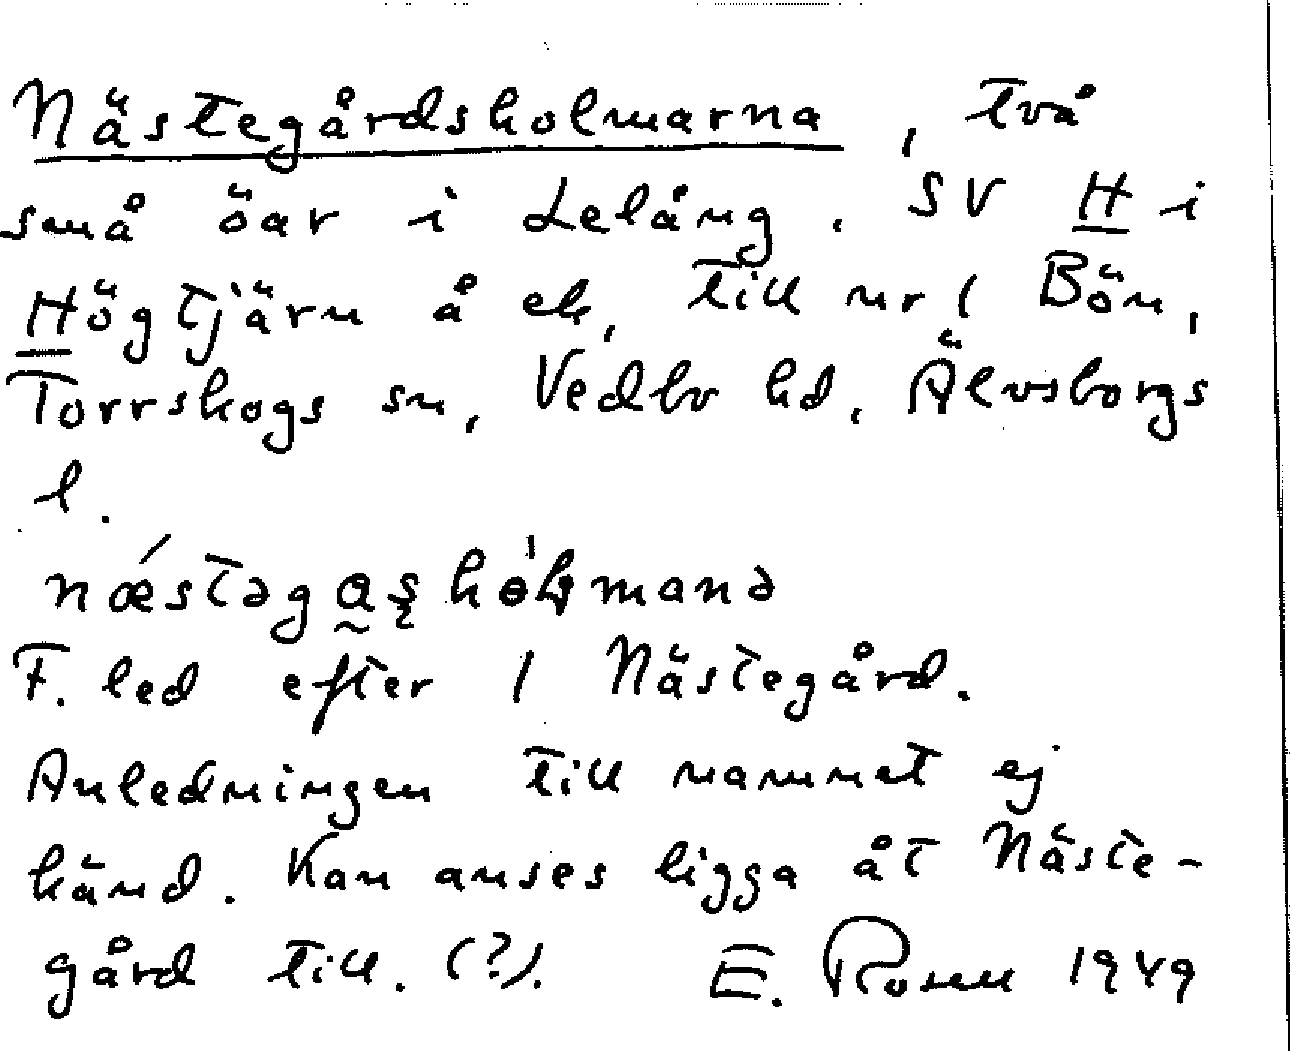 Nästegårdsholmarna, två
små öar i Lelång. SV H i
Högtjärn å ek, till nr 1 Bön,
Torrskogs sn, Vedbo hd, Älvsborgs
l.
F. led efter 1 Nästegård.
Anledningen till namnet ej
känd. Kan anses ligga åt Näste-
gård till. (?). E. Rosen 1949